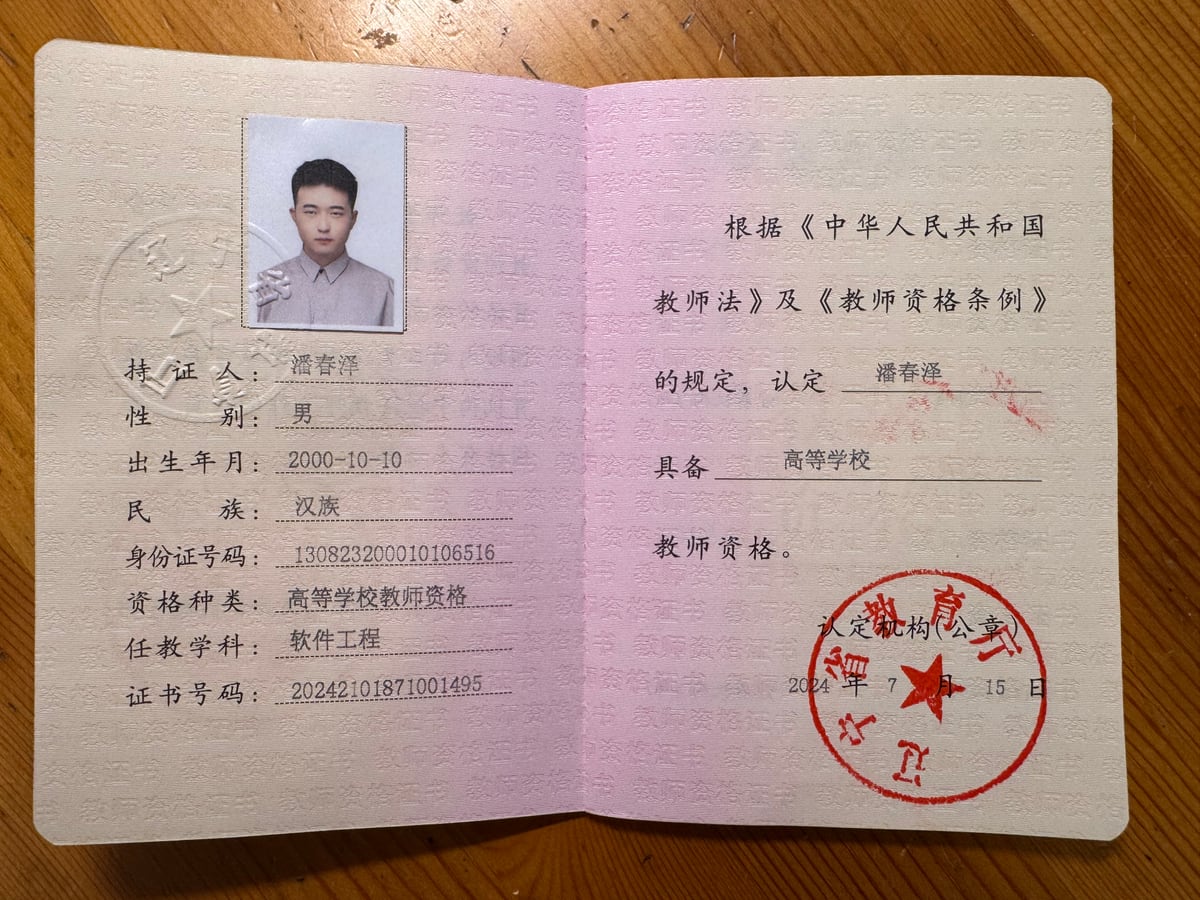 持证人：潘春泽
性别：男
出生年月：2000-10-10
民族：汉族
身份证号码：130823200010106516
资格种类：高等学校教师资格
任教学科：软件工程
证书号码：20242101871001495
根据《中华人民共和国
教师法》及《教师资格条例》
的规定，认定 潘春泽
具备 高等学校
教师资格。
认定机构(公章)
2024 年 7 月 15 日
辽宁省教育厅
教师资格证书